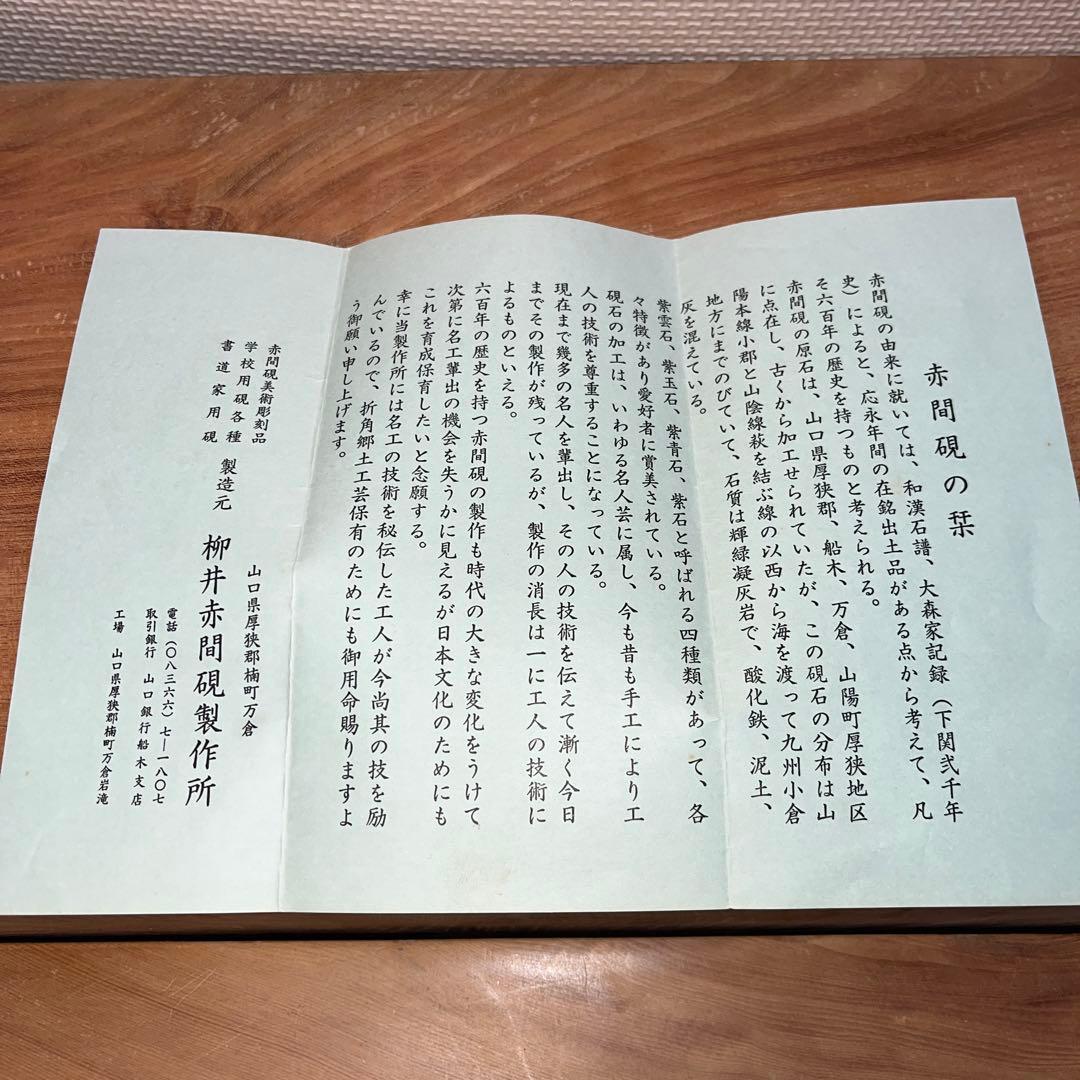 赤間硯の栞
赤間硯の由来に就いては、和漢石譜、大森家記録(下関弐千年
史)によると、応永年間の在銘出土品がある点から考えて、凡
そ六百年の歴史を持つものと考えられる。
赤間硯の原石は、山口県厚狭郡、船木、万倉、山陽町厚狭地区
に点在し、古くから加工せられていたが、この硯石の分布は山
陽本線小郡と山陰線萩を結ぶ線の以西から海を渡って九州小倉
地方にまでのびていて、石質は輝緑凝灰岩で、酸化鉄、泥土、
灰を混えている。
紫雲石、紫玉石、紫青石、紫石と呼ばれる四種類があって、各
々特徴があり愛好者に賞美されている。
硯石の加工は、いわゆる名人芸に属し、今も昔も手工により工
人の技術を尊重することになっている。
現在まで幾多の名人を輩出し、その人の技術を伝えて漸く今日
までその製作が残っているが、製作の消長は一に工人の技術に
よるものといえる。
六百年の歴史を持つ赤間硯の製作も時代の大きな変化をうけて
次第に名工輩出の機会を失うかに見えるが日本文化のためにも
これを育成保育したいと念願する。
幸に当製作所には名工の技術を秘伝した工人が今尚其の技を励
んでいるので、折角郷土工芸保有のためにも御用命賜りますよ
う御願い申し上げます。
赤間硯美術彫刻品
学校用硯各種
書道家用硯
製造元
山口県厚狭郡楠町万倉
柳井赤間硯製作所
電話(〇八三六六)七―一八〇七
取引銀行 山口銀行船木支店
工場 山口県厚狭郡楠町万倉岩滝